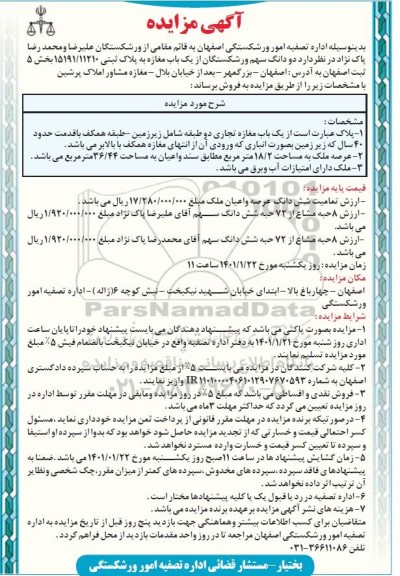 آگهی مزایده
بدینوسیله اداره تصفیه امور ورشکستگی اصفهان به قائم مقامی از ورشکستگان علیرضا ومحمد رضا
پاک نژاد در نظر دارد دو دانگ سهم ورشکستگان از یک باب مغازه به پلاک ثبتی ۱۵۱۹۱/۱۱۲۱۰ بخش ۵
ثبت اصفهان به آدرس: اصفهان - بزرگمهر - بعد از خیابان بلال - مغازه مشاور املاک پرشین
با مشخصات زیر را از طریق مزایده به فروش برساند:
شرح مورد مزایده
مشخصات:
۱-پلاک عبارت است از یک باب مغازه تجاری دو طبقه شامل زیرزمین -طبقه همکف باقدمت حدود
۴۰ سال که زیر زمین بصورت انباری که ورودی آن از انتهای مغازه همکف یا بالابر می باشد.
۲-عرصه ملک به مساحت ۱۸/۲ متر مربع مطابق سند واعیان به مساحت ۳۶/۴۴ مترمربع می باشد.
۳-ملک دارای امتیازات آب وبرق می باشد.
قیمت پایه مزایده:
-ارزش تمامیت شش دانگ عرصه واعیان ملک مبلغ ۱۷/۲۸۰/۰۰۰/۰۰۰ ریال می باشد.
-ارزش ۸حبه مشاع از ۷۲ حبه شش دانگ سهم آقای علیرضا پاک نژاد مبلغ ۱/۹۲۰/۰۰۰/۰۰۰ ریال
می باشد.
-ارزش ۸حبه مشاع از ۷۲ حبه شش دانگ سهم آقای محمدرضا پاک نژاد مبلغ ۱/۹۲۰/۰۰۰/۰۰۰ ریال
می باشد.
زمان مزایده: روز یکشنبه مورخ ۱۴۰۱/۱/۲۲ ساعت ۱۱
مکان مزایده:
اصفهان - چهارباغ بالا - ابتدای خیابان شهید نیکبخت - نبش کوچه ۶(ژاله) - اداره تصفیه امور
ورشکستگی
شرایط مزایده:
۱-مزایده بصورت پاکتی می باشد که پیشنهاد دهندگان می بایست پیشنهاد خود را تا پایان ساعت
اداری روز شنبه مورخ ۱۴۰۱/۱/۲۱ به دفتر اداره تصفیه واقع در خیابان نیکبخت بانضمام فیش ۵٪ مبلغ
مورد مزایده تسلیم نمایند.
۲-کلیه شرکت کنندگان در مزایده می بایست ۵٪ از مبلغ مزایده را به حساب سپرده دادگستری
اصفهان به شماره IR واریز نمایند.
۳-فروش نقدی و اقساطی می باشد که مبلغ ۵٪ در روز مزایده ومابقی در مهلت مقرر توسط اداره در
روز مزایده تعیین می گردد که حداکثر مهلت ۳ماه می باشد.
۴-درصورتیکه برنده مزایده در مهلت مقرر قانونی از پرداخت ثمن مزایده خودداری نماید، مسئول
کسر احتمالی قیمت و خساراتی که از تجدید مزایده حاصل شود خواهد بود که بدوا از سپرده او استیفا
و سپرده تا تعیین کسر قیمت و خسارت وارده مسترد نخواهد شد.
۵- زمان گشایش پیشنهاد ها در ساعت ۱۱صبح روز یکشنبه مورخ ۱۴۰۱/۰۱/۲۲ می باشد. ضمنا به
پیشنهادهای فاقد سپرده، سپرده های مخدوش، سپرده های کمتر از میزان مقرر، چک شخصی ونظایر
آن ترتیب اثر داده نخواهد شد.
۶-اداره تصفیه در رد یا قبول یک یا کلیه پیشنهادها مختار است.
۷-هزینه های نشر آگهی مزایده برعهده برنده مزایده می باشد.
متقاضیان برای کسب اطلاعات بیشتر وهماهنگی جهت بازدید پنج روز قبل از تاریخ مزایده به اداره
تصفیه امور ورشکستگی اصفهان مراجعه تا در روز واحد مقدمات بازدید از محل فراهم گردد.
تلفن ۳۶۶۱۱۰۸۶-۰۳۱
بختیار - مستشار قضائی اداره تصفیه امور ورشکستگی